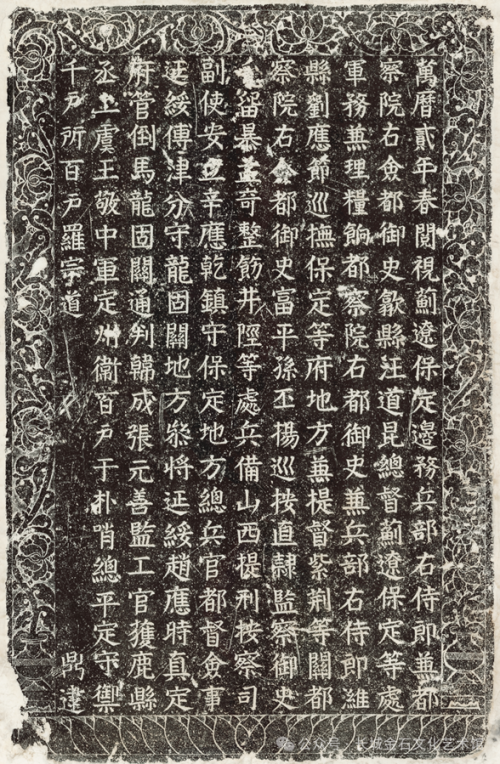 萬曆貳年春閱視薊遼保定邊務兵部右侍郎蒹都
察院右僉都御史歙縣汪道昆總督薊遼保定等處
軍務蒹理糧餉都察院右都御史蒹兵部右侍郎維
縣劉應節巡撫保定等府地方蒹提督紫荊等關都
察院右僉都御史富平孫丕揚巡按直隸監察御史
留暴孟竒整飭井陘等處兵備山西提刑按察司
副使安丘辛應乾鎮守保定地方總兵官都督僉事
延綏傅津分守龍固關地方叅將延綏趙應時真定
府管倒馬龍固關通判韓成張元善監工官獲鹿縣
丞上虞王敬中軍定州衞百户于朴哨總平定守禦
千户所百户羅宗道 鼎建
公众号 · 长城金石文化艺术馆